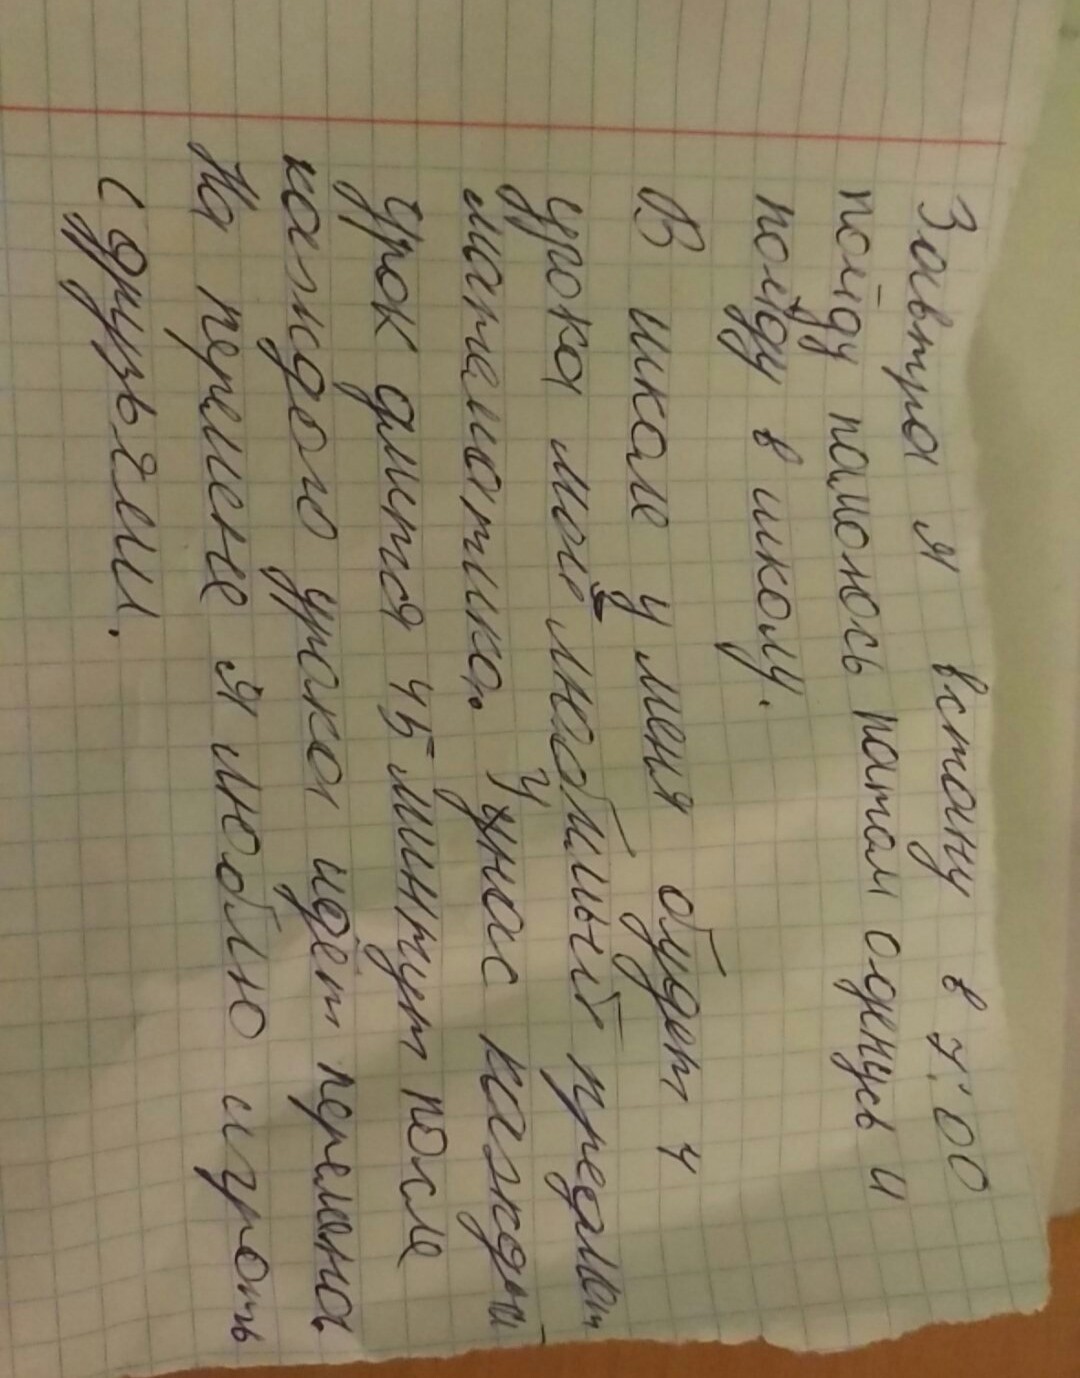 Завтра я встану в 7:00
пойду памоюсь патом оденусь и
пойду в школу.
В шкале у меня будет 4
урока мой любимый предмет
математика. У нас каждый
урок длится 45 минтут после
каждого урока идёт перемена
На перемене я люблю играть
с друзьями.